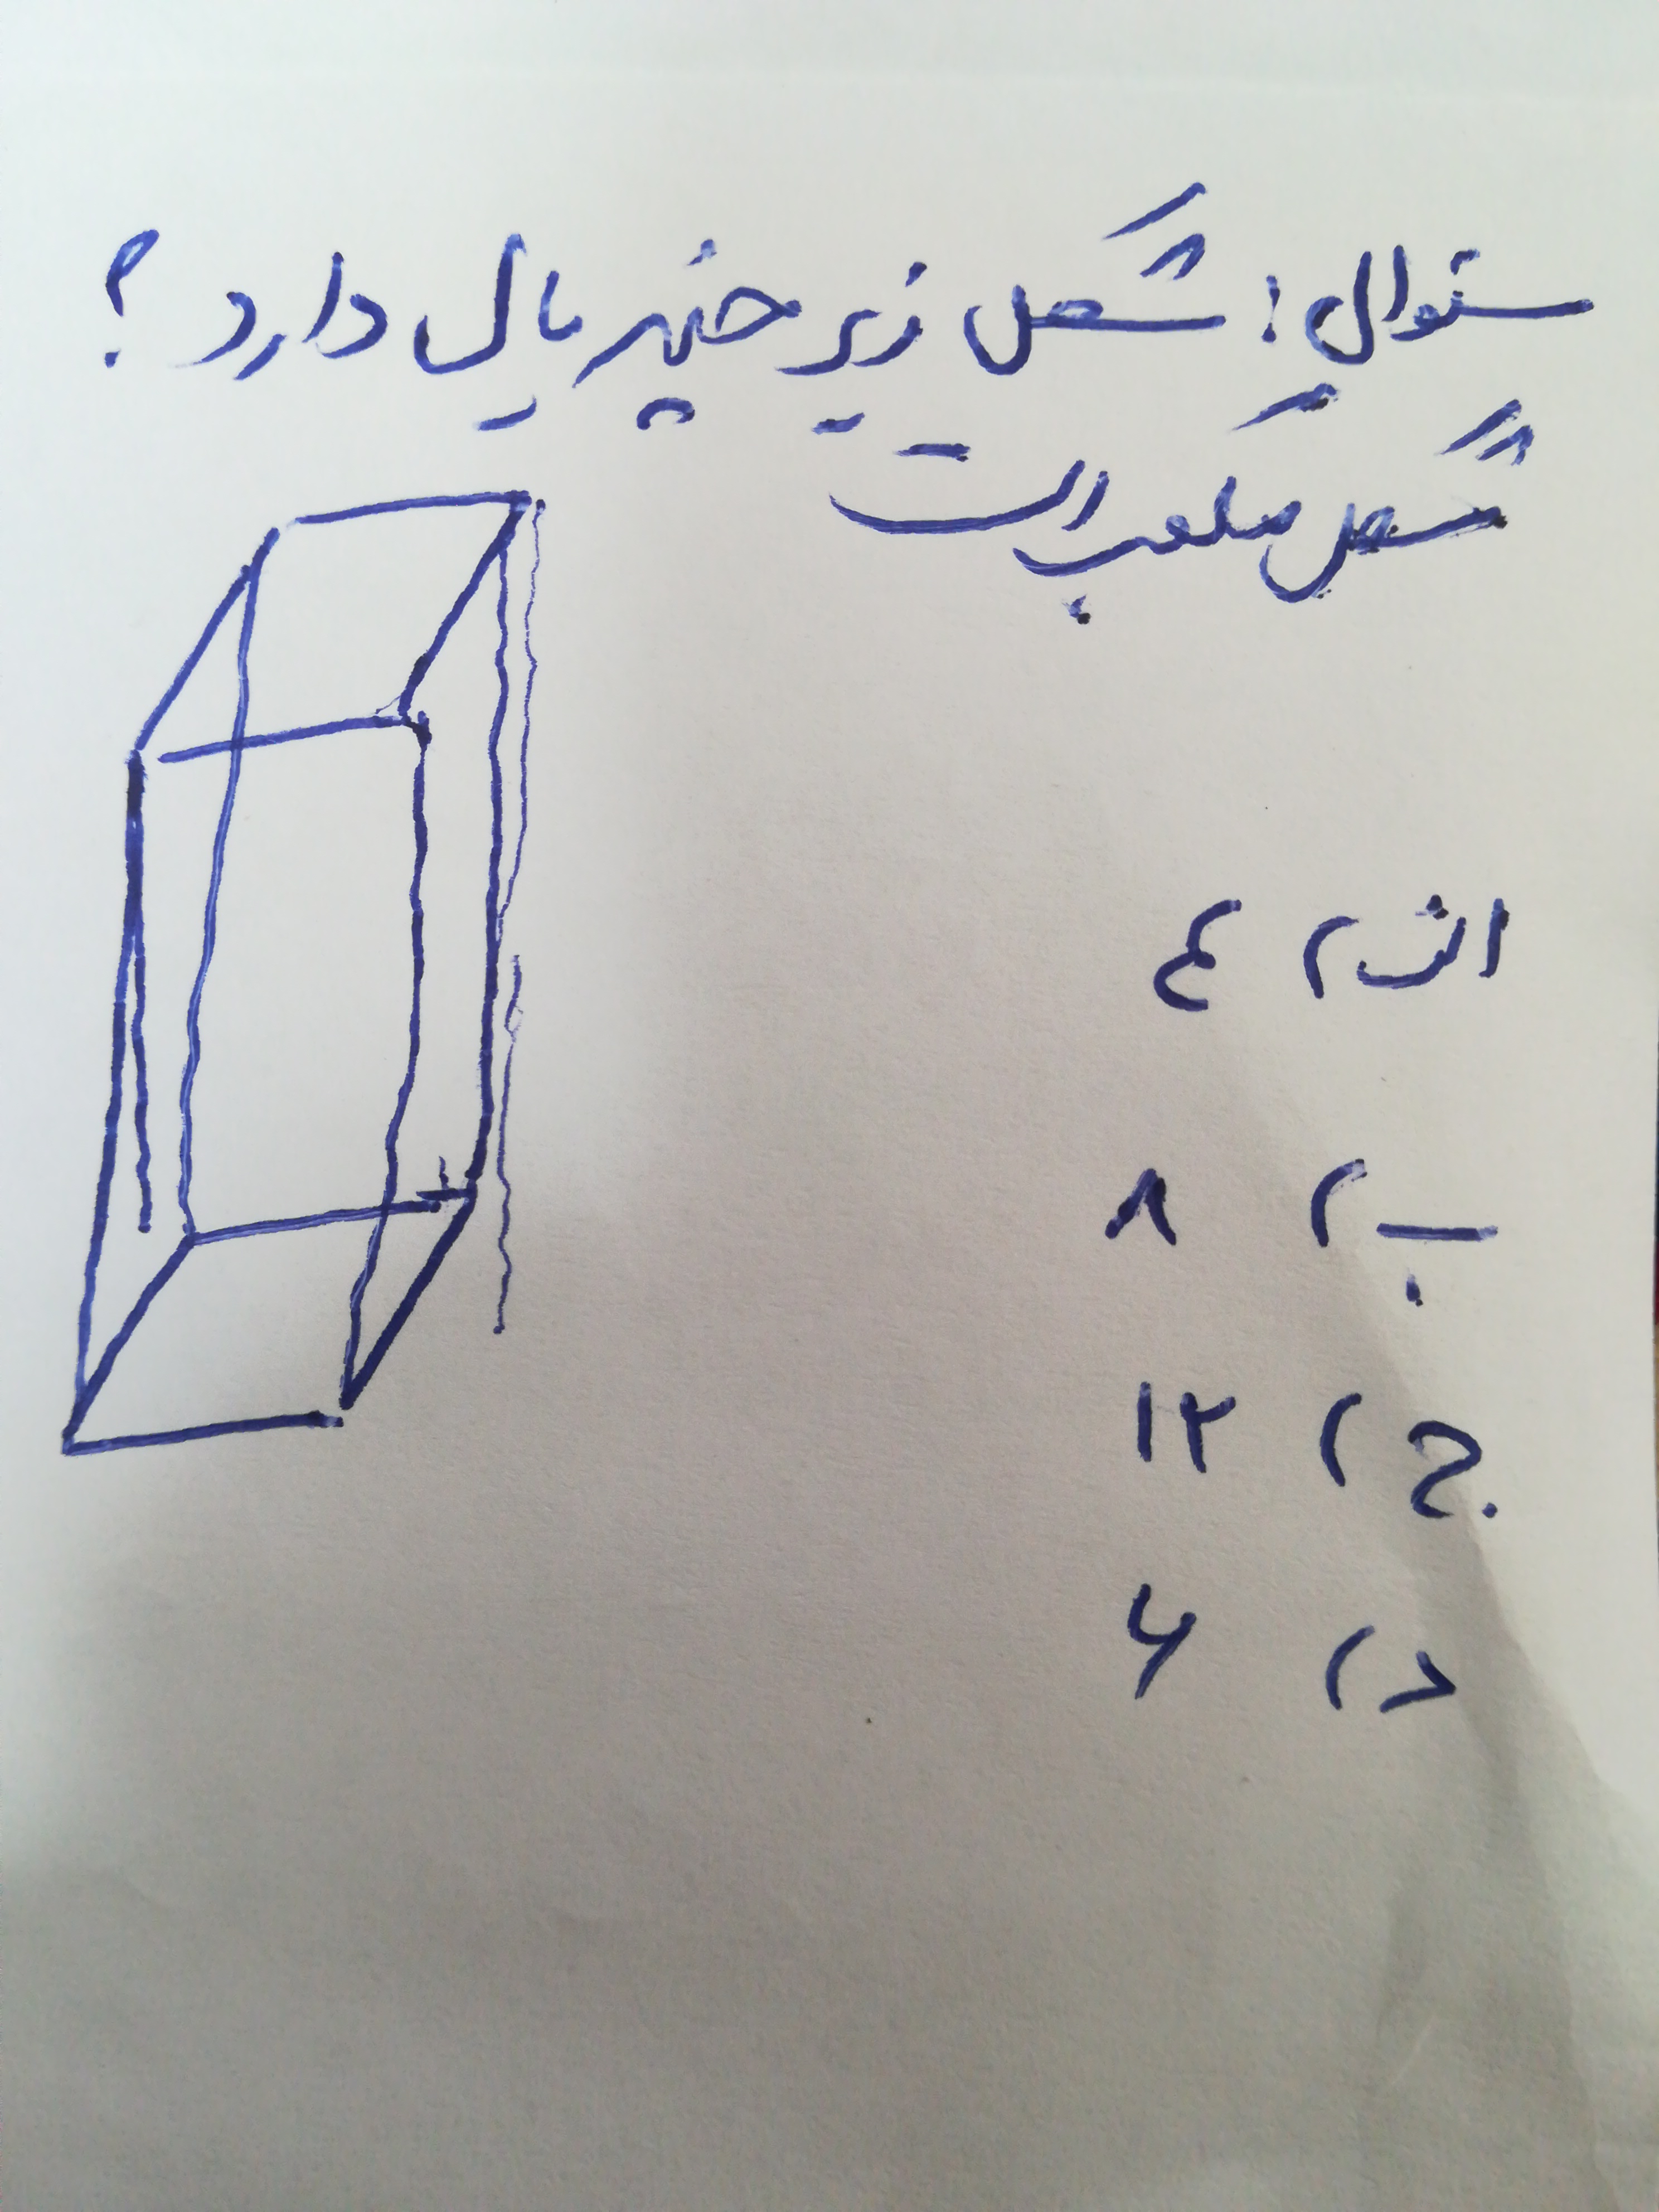 سئوال: شکل زیر چند یال دارد؟
شکل مکعب است
الف) ۴
ب) ۸
ج) ۱۲
د) ۶